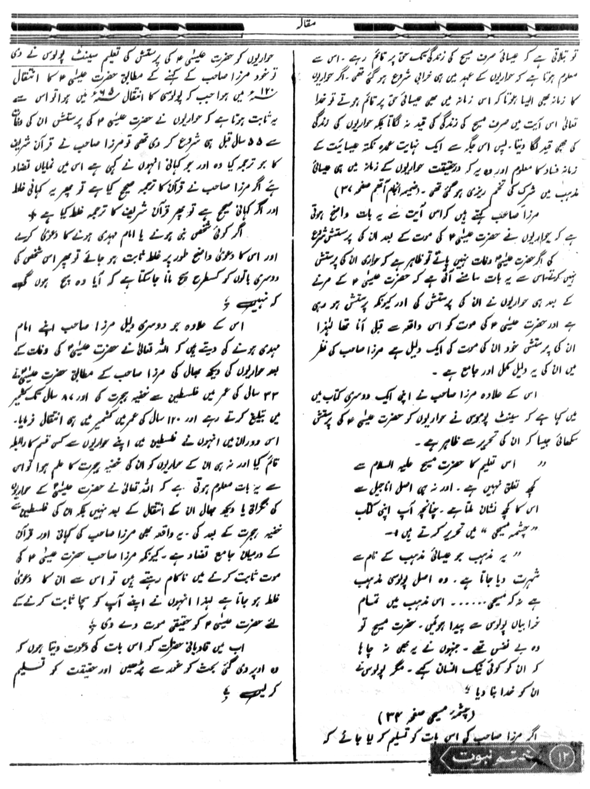 مقالہ
تو بتلاتی ہے کہ عیسائی صرف مسیح کی زندگی تک حق پر قائم رہے۔ اس سے
معلوم ہوتا ہے کہ حواریوں کے عہد میں ہی خرابی شروع ہو گئی تھی۔ اگر حواریوں
زمانہ بھی ایسا ہوتا کہ اس زمانہ میں بھی عیسائی حق پر قائم ہوتے تو خدا
تعالیٰ اس آیت میں صرف مسیح کی زندگی کی قید نہ لگاتا بلکہ حواریوں کی زندگی
کی بھی قید لگا دیتا۔ پس اس جگہ سے ایک نہایت عمدہ نکتہ عیسائیت کے
زمانہ فساد کا معلوم ہوتا اور وہ یہ کہ درحقیقت حواریوں کے زمانہ میں ہی عیسائی
مذہب میں شرک کی تخم ریزی ہو گئی تھی۔ (ضمیمہ انجام آتھم صفحہ ۳۷)
مرزا صاحب کہتے ہیں کہ اس آیت سے یہ بات واضح ہوتی
ہے کہ حواریوں نے حضرت عیسیٰؑ کی موت کے بعد ان کی پرستش شروع
کی اگر حضرت عیسیٰؑ وفات نہیں پاتے تو ظاہر ہے کہ حواری ان کی پرستش
نہیں کرتے اس سے یہ بات سامنے آتی ہے کہ حضرت عیسیٰؑ کے مرنے
کے بعد ہی حواریوں نے ان کی پرستش کی اور کیونکہ پرستش ہو رہی
تھی حضرت عیسیٰؑ کی موت کو اس واقعہ سے قبل آنا تھا لہٰذا
ان کی پرستش خود ان کی موت کی ایک دلیل ہے مرزا صاحب کی نظر
میں ان کی یہ دلیل مکمل اور جامع ہے۔
اس کے علاوہ مرزا صاحب نے اپنی ایک دوسری کتاب میں
میں کہا ہے کہ سینٹ پولوس نے حواریوں کو حضرت عیسیٰؑ کی پرستش
سکھائی جیسا کہ ان کی تحریر سے ظاہر ہے۔
"اس تعلیم کا حضرت مسیح علیہ السلام سے
کچھ تعلق نہیں ہے۔ اور نہ ہی اصل اناجیل سے
اس کا کچھ نشان ملتا ہے۔ چنانچہ آپ اپنی کتاب
"چشمہ مسیحی" میں تحریر کرتے ہیں:-
"یہ مذہب جو عیسائی مذہب کے نام سے
شہرت دیا جاتا ہے۔ وہ اصل پولوسی مذہب
ہے نہ کہ مسیحی...... اس مذہب میں تمام
خرابیاں پولوس سے پیدا ہوئیں۔ حضرت مسیح تو
وہ بے نفس تھے۔ جنہوں نے یہ بھی نہ چاہا
کہ ان کو کوئی نیک انسان کہے۔ مگر پولوس نے
ان کو خدا بنا دیا"
(چشمہ مسیحی صفحہ ۳۴)
اگر مرزا صاحب کی اس بات کو تسلیم کر لیا جائے کہ
حواریوں کو حضرت عیسیٰؑ کی پرستش کی تعلیم سینٹ پولوس نے دی
تو خود مرزا صاحب کے کہنے کے مطابق حضرت عیسیٰؑ کا انتقال
۱۲۰ء میں ہوا جب کہ پولوس کا انتقال ۶۵ء میں ہوا تو اس سے
یہ ثابت ہوتا ہے کہ حواریوں نے حضرت عیسیٰؑ کی پرستش ان کی وفات
سے ۵۵ سال قبل ہی شروع کر دی تھی تو مرزا صاحب نے قرآن شریف
کا جو ترجمہ کیا وہ اور جو کہانی انہوں نے کہی ہے اس میں نمایاں تضاد
ہے اگر مرزا صاحب نے قرآن کا ترجمہ صحیح کیا ہے تو پھر یہ کہانی غلط
اور اگر کہانی صحیح ہے تو پھر قرآن شریف کا ترجمہ غلط کیا ہے۔
اگر کوئی شخص نبی ہونے یا امام مہدی ہونے کا دعویٰ کرے
اور اس کا دعویٰ واضح طور پر غلط ثابت ہو جائے تو پھر اس شخص کی
دوسری باتوں کو کس طرح سچ مانا جاسکتا ہے کہ آیا وہ سچ ہوں گی
کہ نہیں؟
اس کے علاوہ جو دوسری دلیل مرزا صاحب اپنے امام
مہدی ہونے کی دیتے ہیں کہ اللہ تعالیٰ نے حضرت عیسیٰؑ کی وفات کے
بعد حواریوں کی دیکھ بھال کی مرزا صاحب کے مطابق حضرت عیسیٰؑ نے
۳۳ سال کی عمر میں فلسطین سے خفیہ ہجرت کی اور ۸۷ سال تک کشمیر
میں تبلیغ کرتے رہے اور ۱۲۰ سال کی عمر میں کشمیر میں ہی انتقال فرمایا۔
اس دوران میں انہوں نے فلسطین میں اپنے حواریوں سے کسی قسم کا رابطہ
قائم کیا اور نہ ہی ان کے حواریوں کو ان کی خفیہ ہجرت کا علم ہوا تو اس
سے یہ بات معلوم ہوتی ہے کہ اللہ تعالیٰ نے حضرت عیسیٰؑ کے حواریوں
کی نگرانی یا دیکھ بھال ان کے انتقال کے بعد نہیں بلکہ ان کی فلسطین سے
خفیہ ہجرت کے بعد کی۔ یہ واقعہ بھی مرزا صاحب کی کہانی اور قرآن
کے درمیان جامع تضاد ہے۔ کیونکہ مرزا صاحب حضرت عیسیٰؑ کی
موت ثابت کرنے میں ناکام رہتے ہیں تو اس سے ان کا دعویٰ
غلط ہو جاتا ہے لہٰذا انہوں نے اپنے آپ کو سچا ثابت کرنے کے
لئے حضرت عیسیٰؑ کو حقیقی موت دے دی۔
اب میں قادیانی حضرات کو اس بات کی دعوت دیتا ہوں کہ
وہ اوپر دی گئی بحث کو غور سے پڑھیں اور حقیقت کو تسلیم
کر لیں۔
ختم نبوت
۱۲